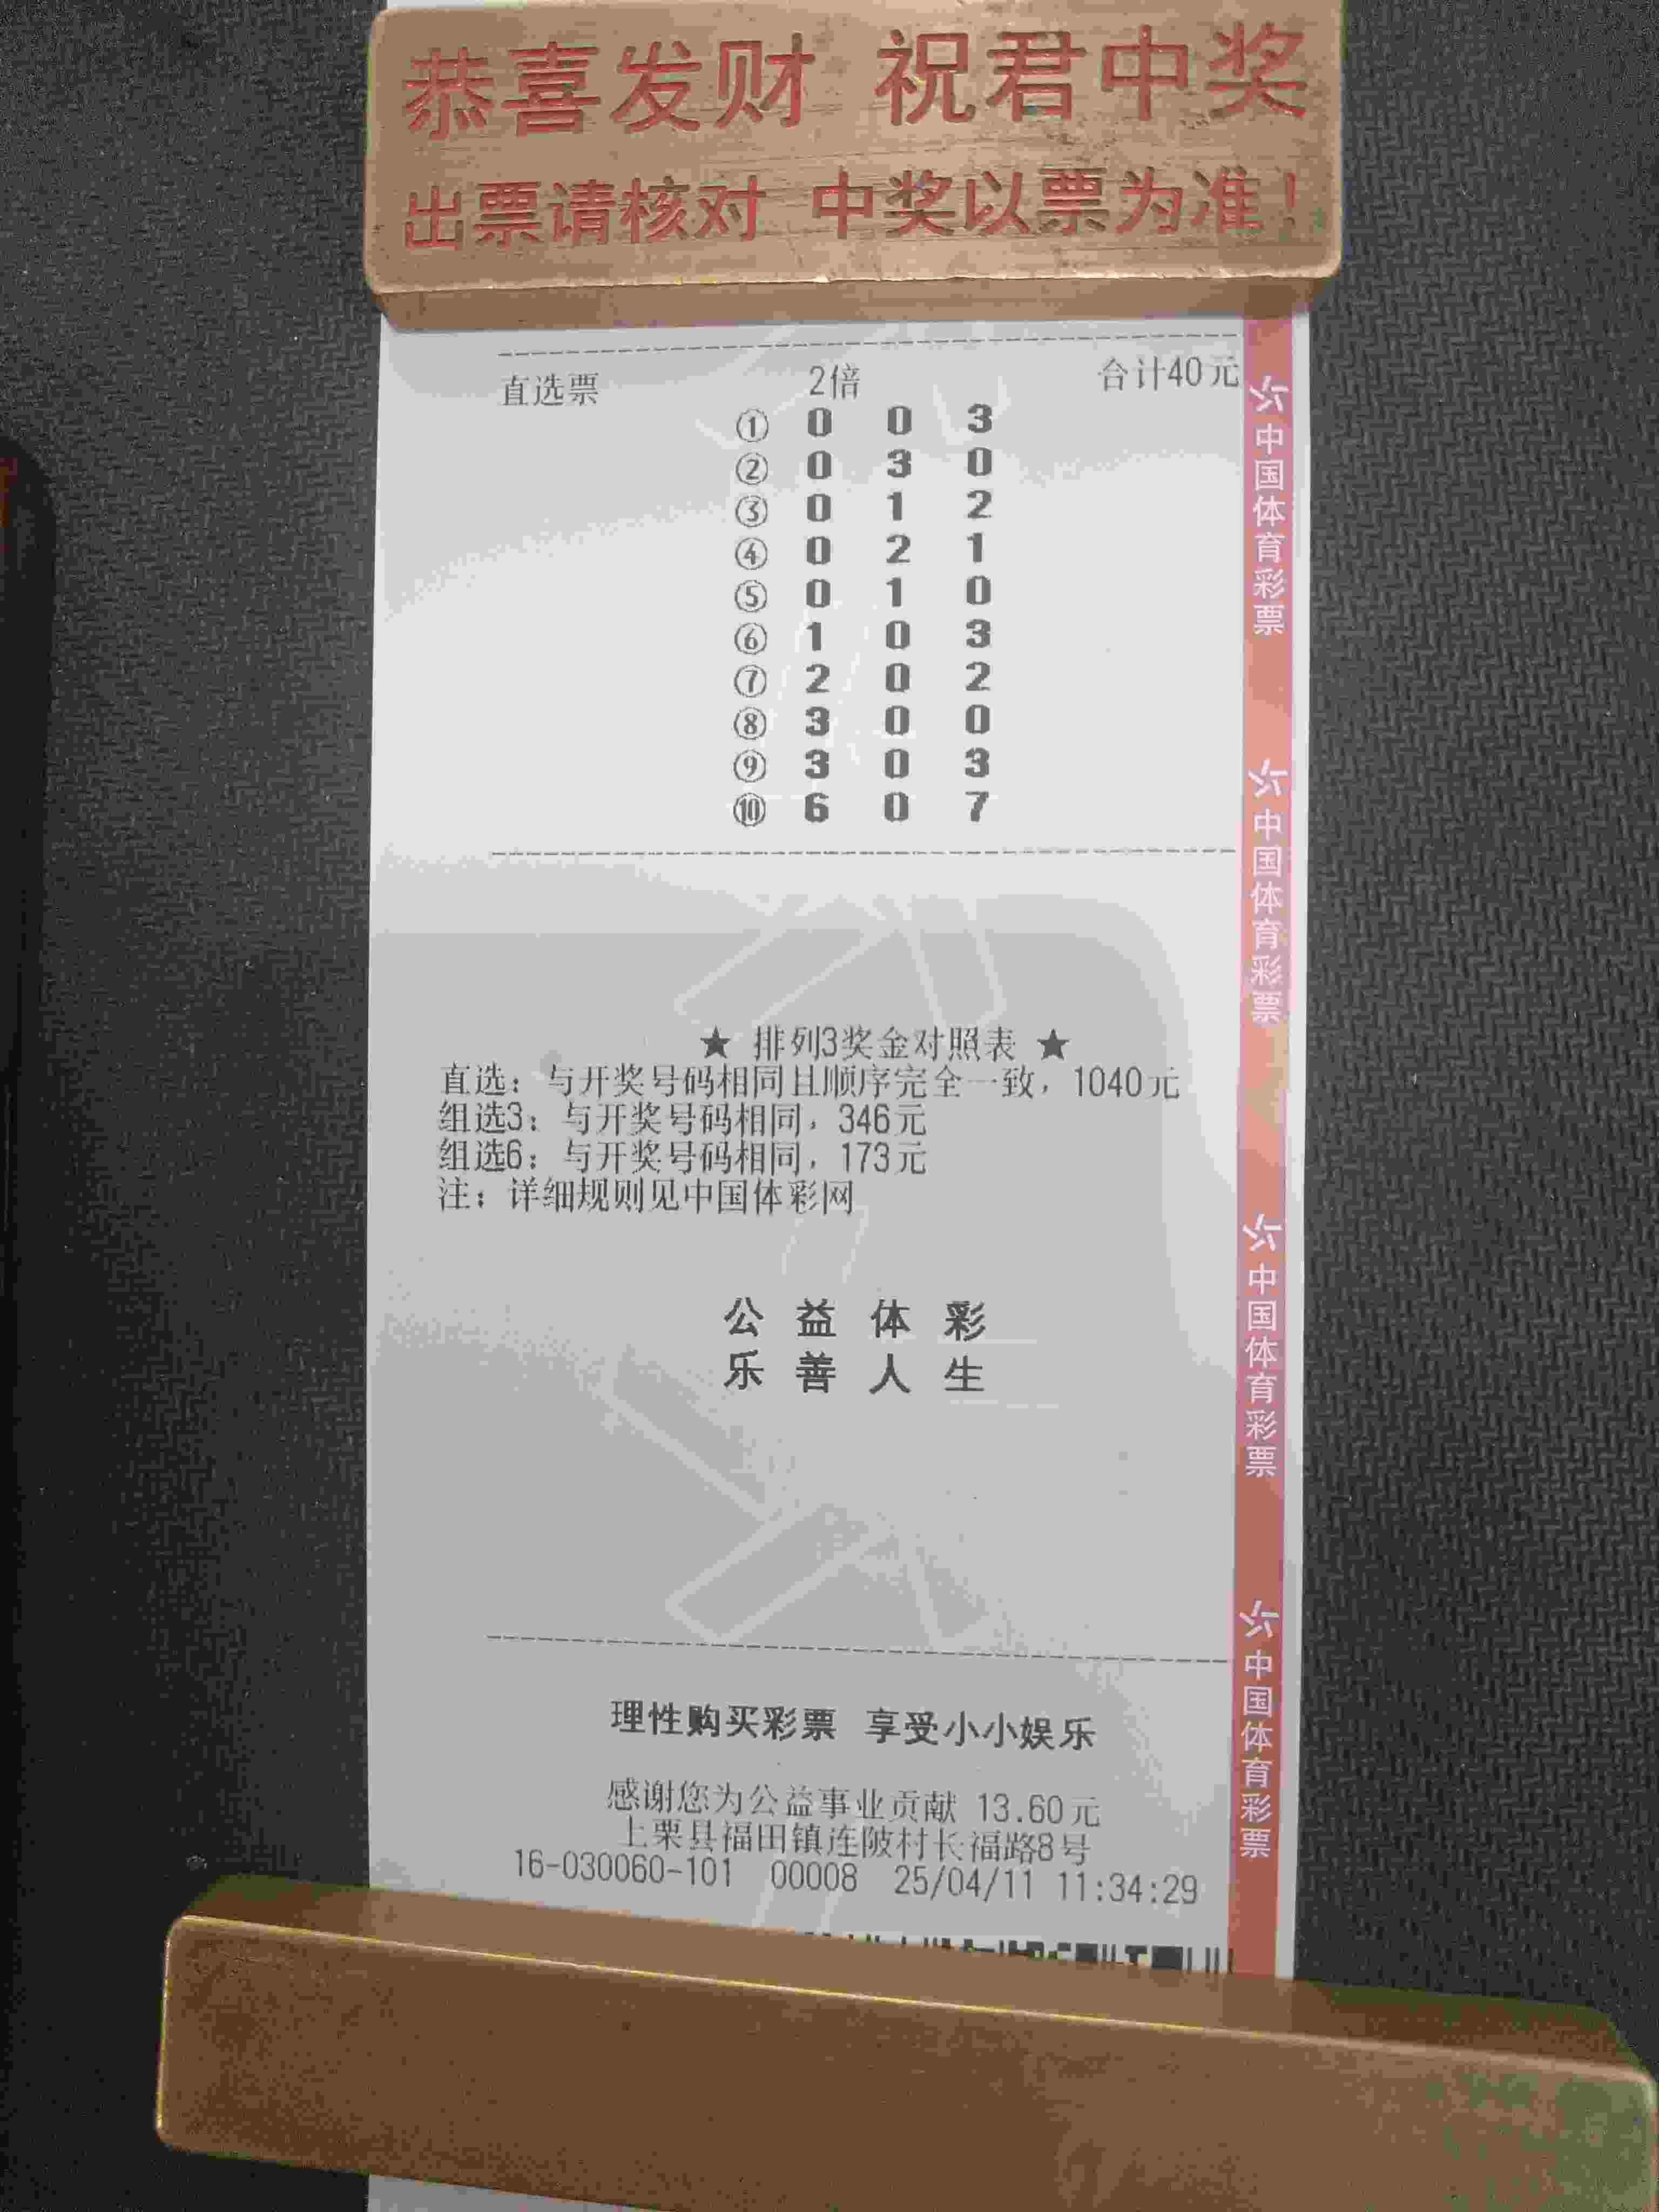 恭喜发财 祝君中奖
出票请核对 中奖以票为准!
直选票 2倍 合计40元
① 0 0 3
② 0 3 0
③ 0 1 2
④ 0 2 1
⑤ 0 1 0
⑥ 1 0 3
⑦ 2 0 2
⑧ 3 0 0
⑨ 3 0 3
⑩ 6 0 7
★ 排列3奖金对照表 ★
直选:与开奖号码相同且顺序完全一致,1040元
组选3:与开奖号码相同,346元
组选6:与开奖号码相同,173元
注:详细规则见中国体彩网
公益体彩
乐善人生
理性购买彩票 享受小小娱乐
感谢您为公益事业贡献 13.60元
上栗县福田镇连陂村长福路8号
16-030060-101 00008 25/04/11 11:34:29
中国体育彩票
中国体育彩票
中国体育彩票
中国体育彩票